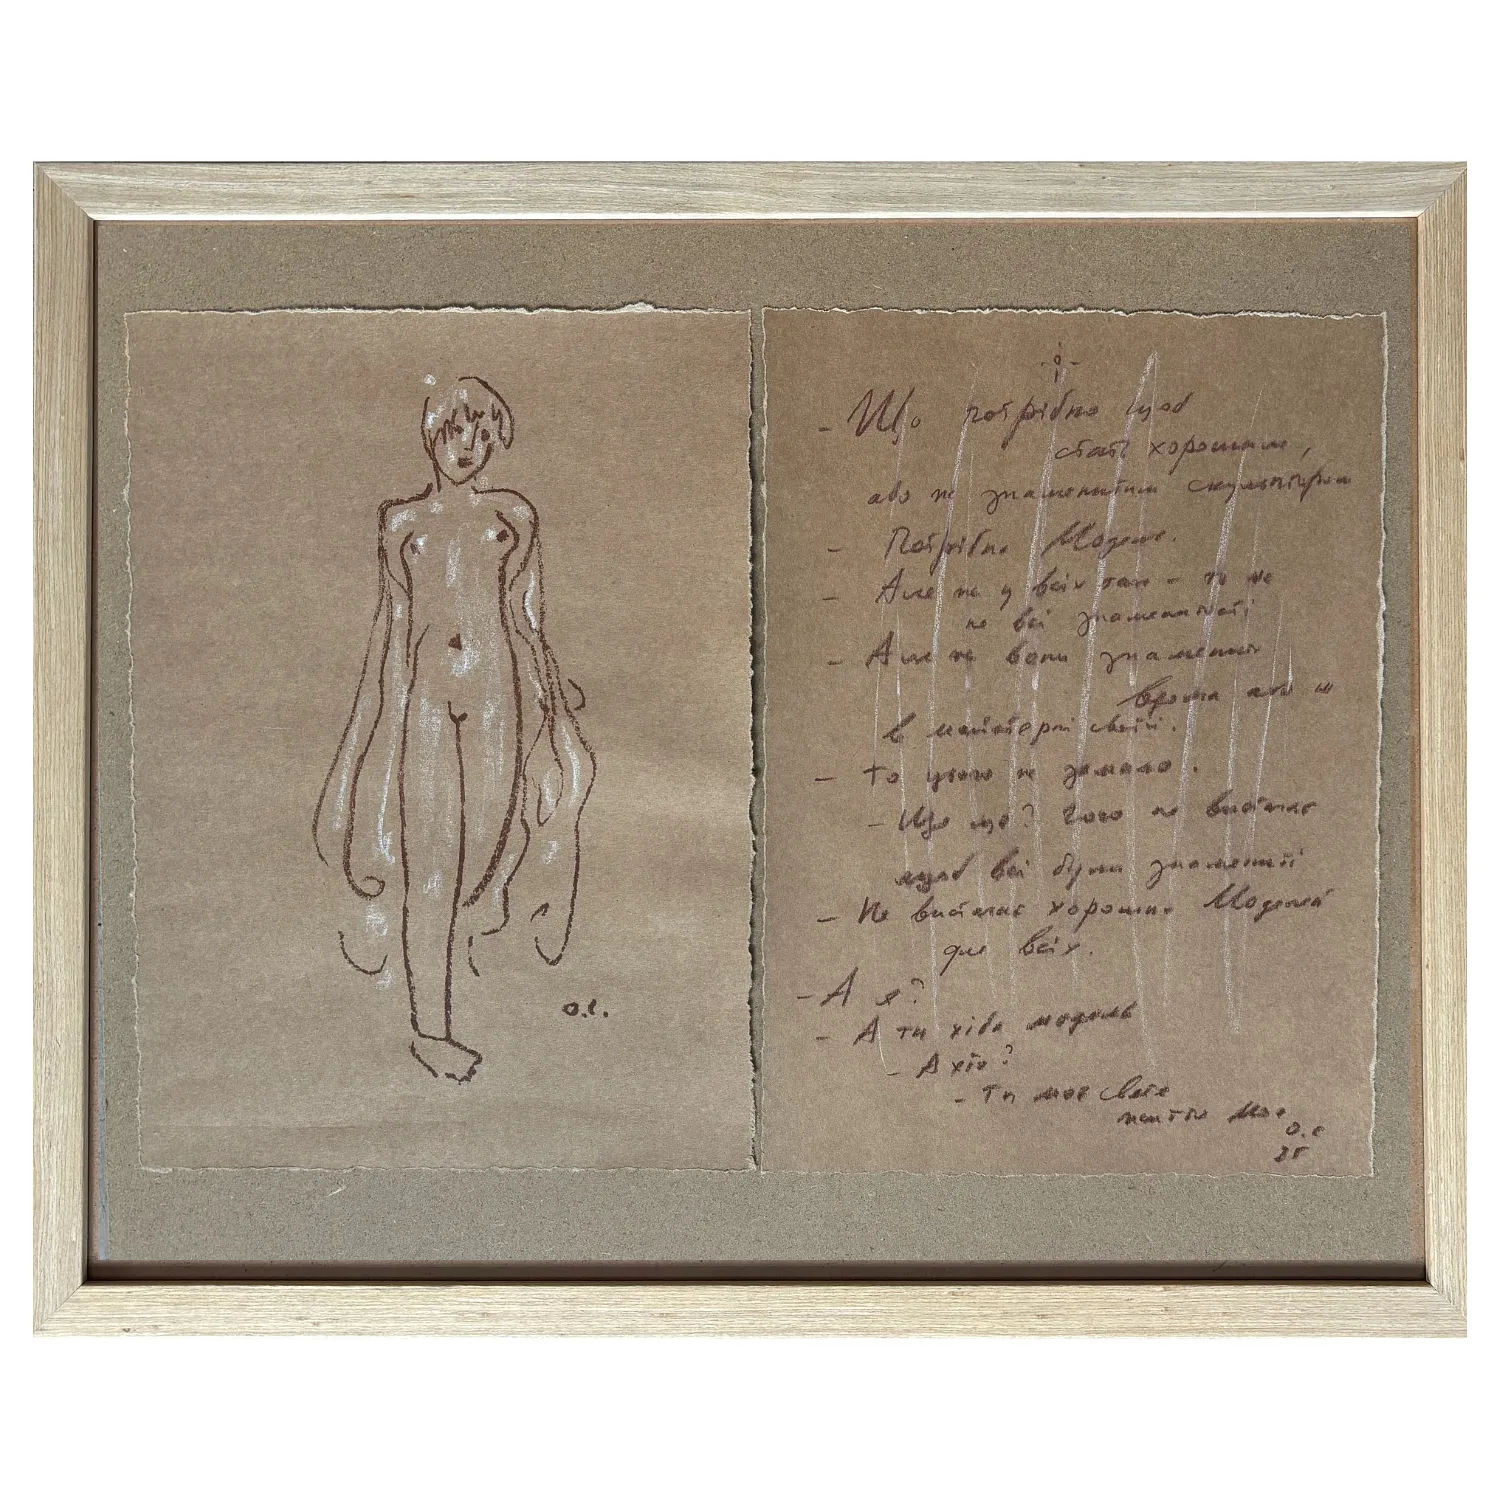 О.С.
- Що потрібно щоб
стать хорошим,
або не знаменитим скульптором
- Потрібно Модель.
- Але не у всіх так - то не
не всі знаменитості
- Але не вони знамениті
або ж
в майстерні своїй.
- То цього не замало.
- Ще що? Чого не вистачає
щоб всі були знамениті
- Не вистачає хороших Моделей
для всіх.
- А я?
- А ти хіба модель
- А хто?
- Ти моє
життя Моє
О.С
25